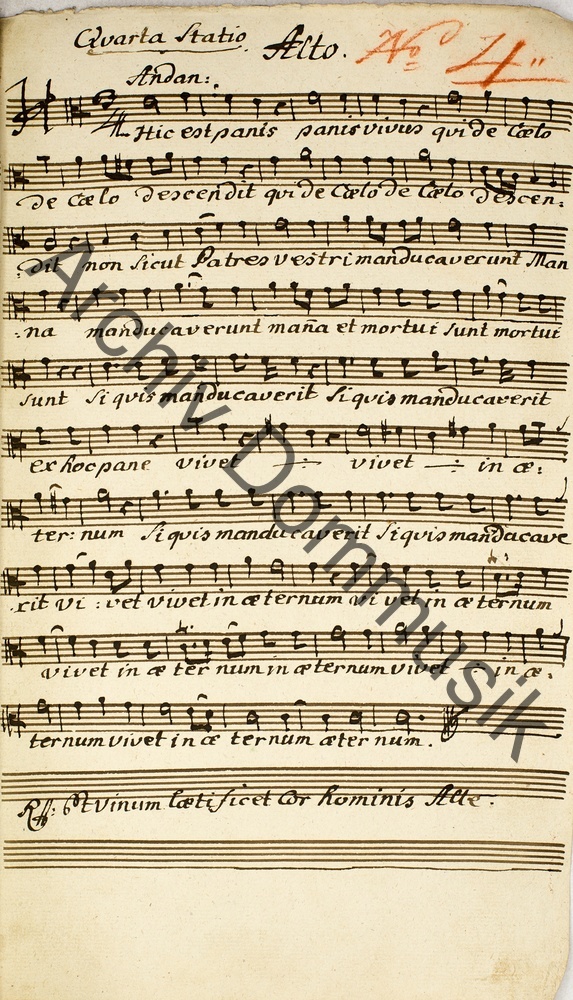 Qvarta Statio. Alto. No 4"
Andan:
Hic est panis panis vivus qvi de Cœlo
de Cœlo descendit qvi de Cœlo de Cœlo descen:
:dit non sicut Patres vestri manducaverunt Man
:na manducaverunt mana et mortui sunt mortui
sunt Si qvis manducaverit Si qvis manducaverit
ex hoc pane vivet ÷ vivet ÷ in æ:
ter: num Si qvis manducaverit Si qvis manducave
rit vi : vet vivet in æ ternum vi vet in æ ternum
vivet in æ ter num in æ ternum vivet ÷ in æ:
ternum vivet in æ ternum æter num.
Et vinum lætificet Cor hominis Alle:
Archiv Dommusik